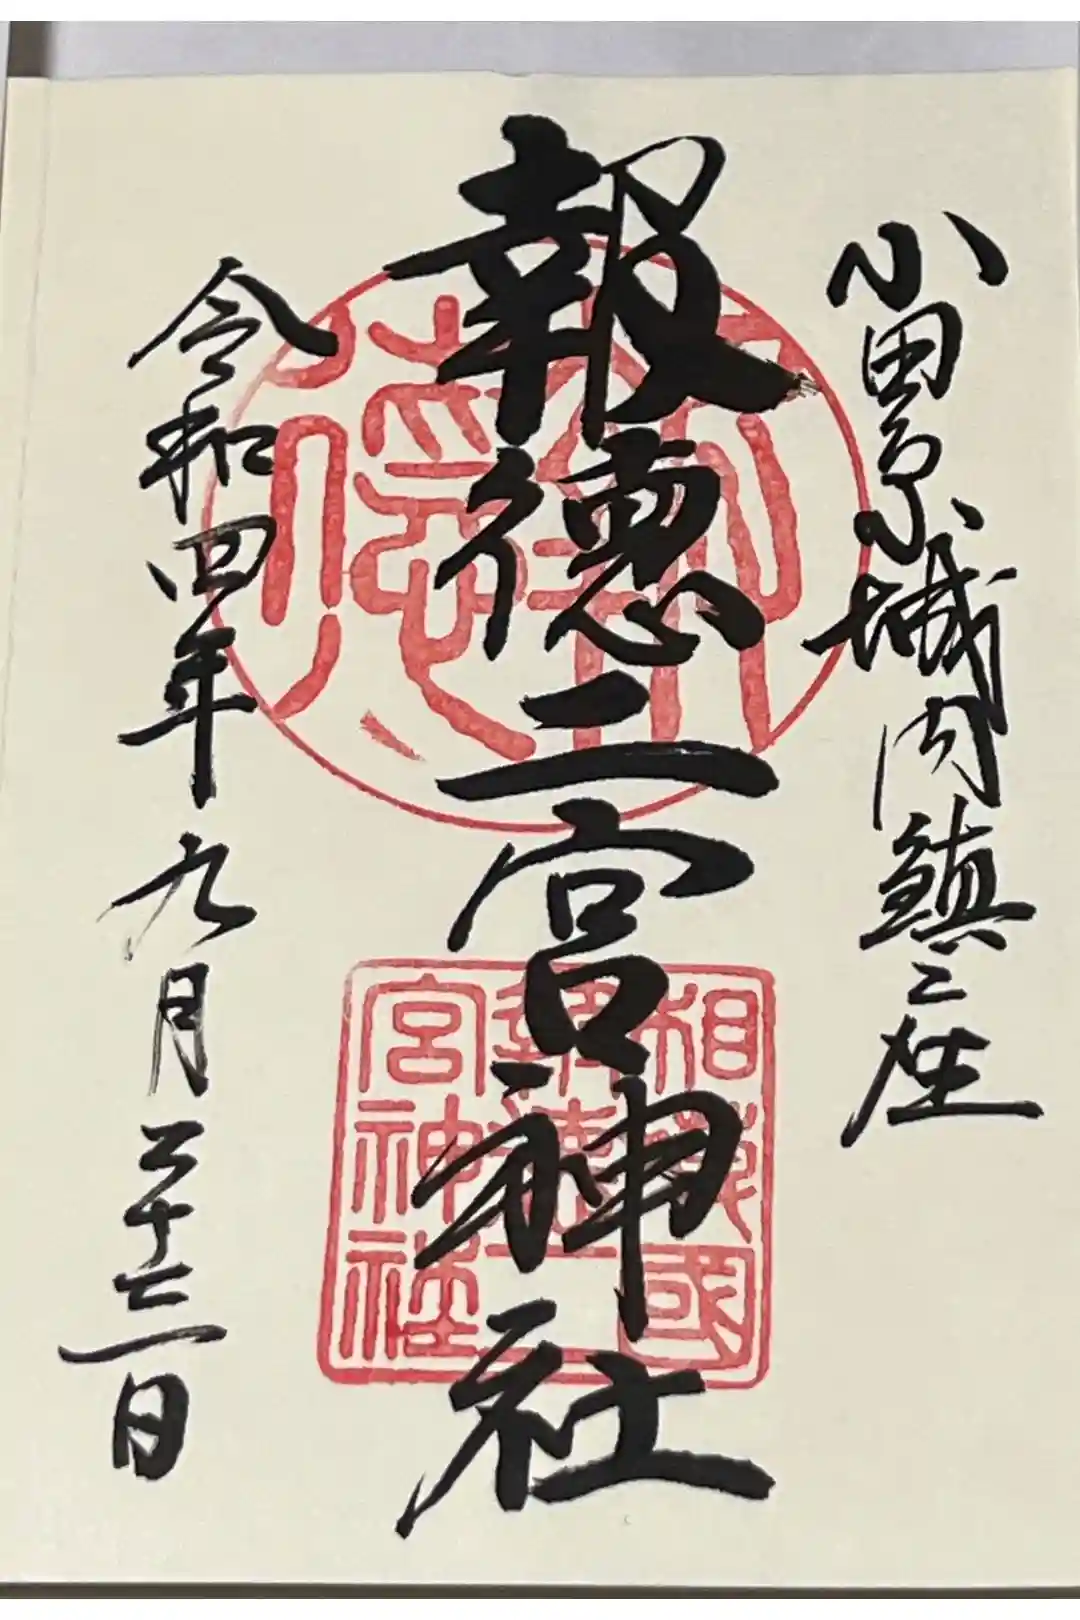 小田原城内鎮座
報徳二宮神社
相模國
報徳二
宮神社
令和四年九月二十三日